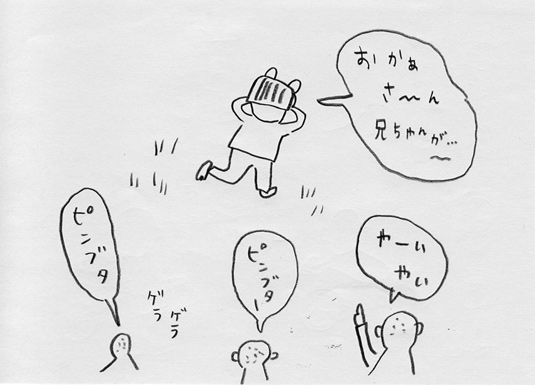 おかぁ
さ〜ん
兄ちゃんが…
〜
ピンブタ
ゲラ
ゲラ
ピンブター
やーい
やい